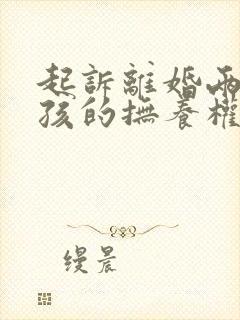 起訴離婚兩
孩的撫養權
缦晨